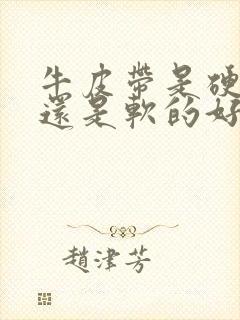 牛皮帶是硬
還是軟的好
趙津芳